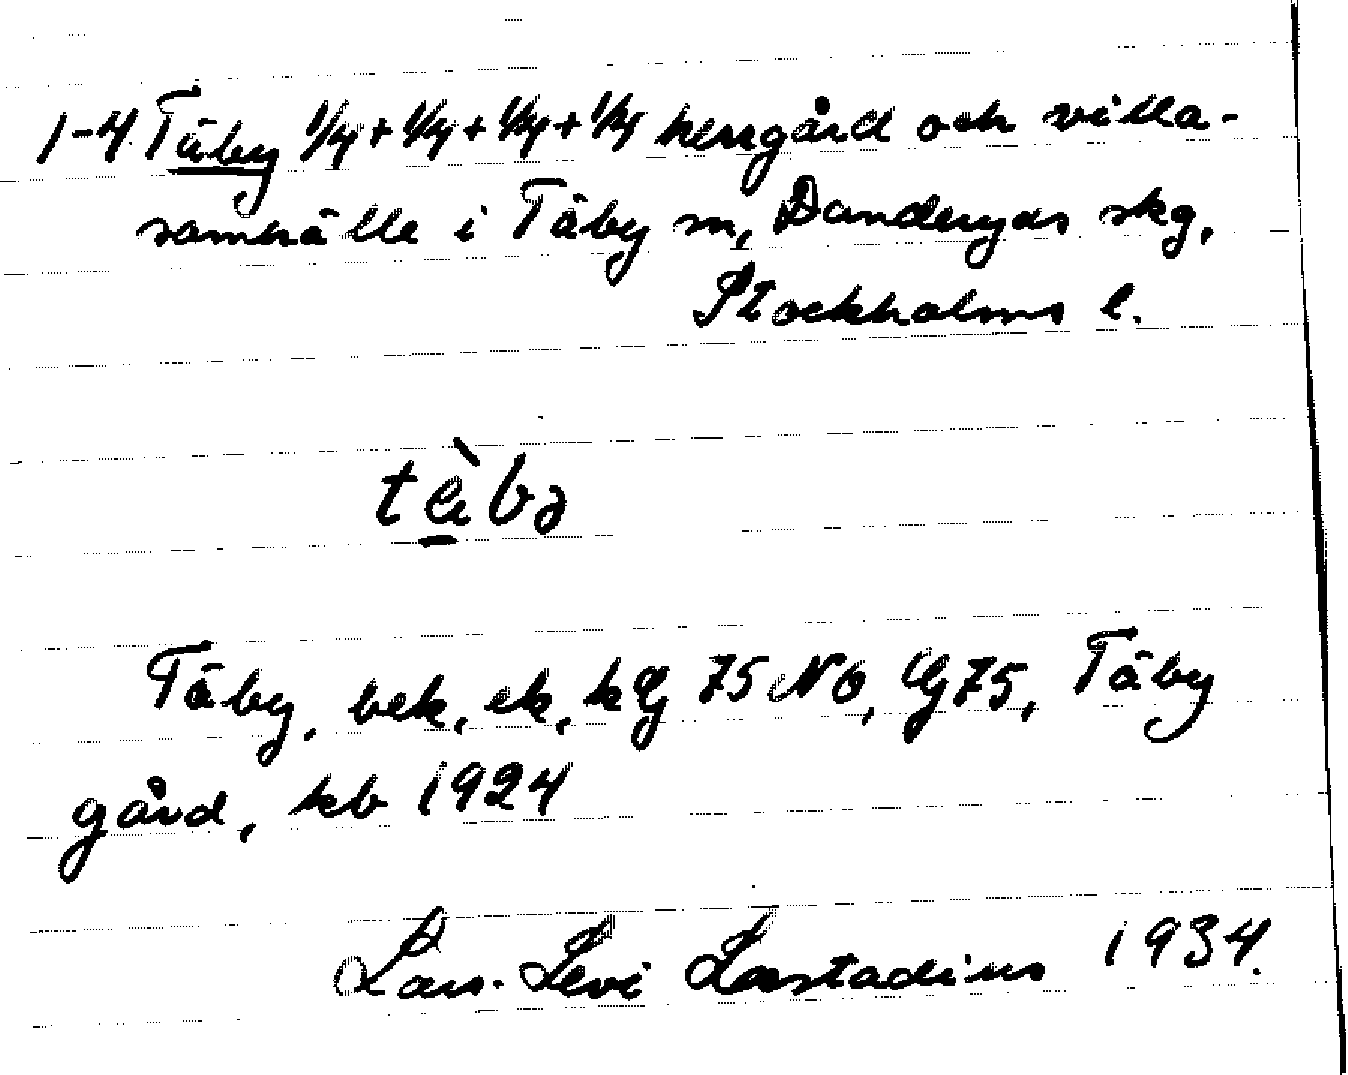 1-4. Täby 1/4 + 1/4 + 1/4 + 1/4 herrgård och villa-
samhälle i Täby sn, Danderyds skg,
Stockholms l.
tæ̀bə
Täby, bek, ek, hg 75 NO, Gg 75, Täby
gård, kb 1924
Lars-Levi Læstadius 1934.